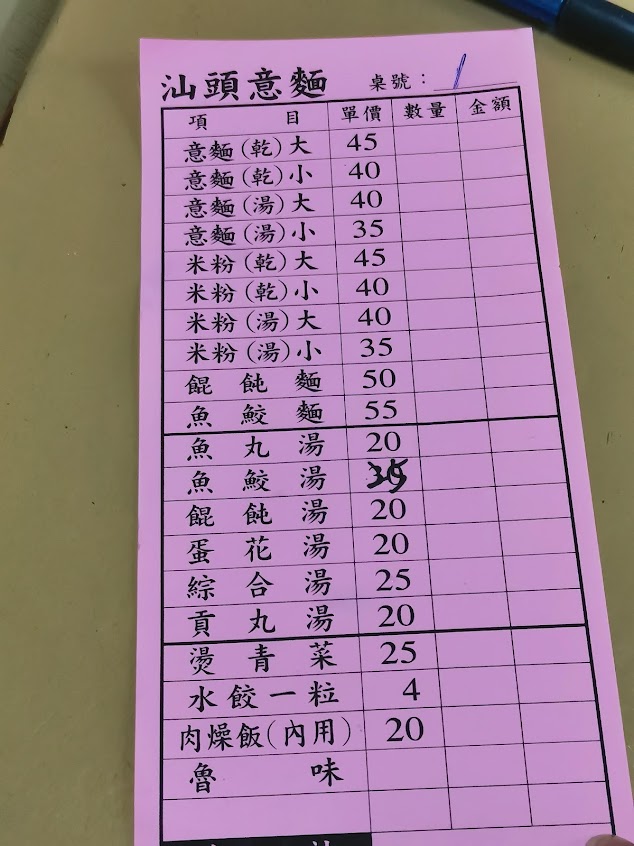 汕頭意麵 桌號：1
項目 單價 數量 金額
意麵(乾)大 45
意麵(乾)小 40
意麵(湯)大 40
意麵(湯)小 35
米粉(乾)大 45
米粉(乾)小 40
米粉(湯)大 40
米粉(湯)小 35
餛飩麵 50
魚鮫麵 55
魚丸湯 20
魚鮫湯
餛飩湯 20
蛋花湯 20
綜合湯 25
貢丸湯 20
燙青菜 25
水餃一粒 4
肉燥飯(內用) 20
魯味